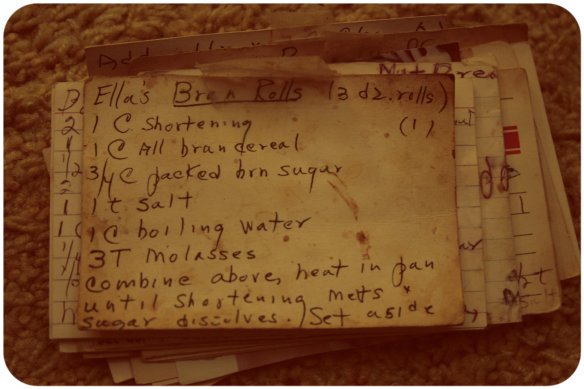 Ella's Bran Rolls (3 dz. rolls)
1 C. Shortening (1)
1 C All bran cereal
3/4 C packed brn sugar
1 t. salt
1 C boiling water
3 T Molasses
Combine above, heat in pan
until Shortening melts *
sugar dissolves. Set aside
Nut Bread